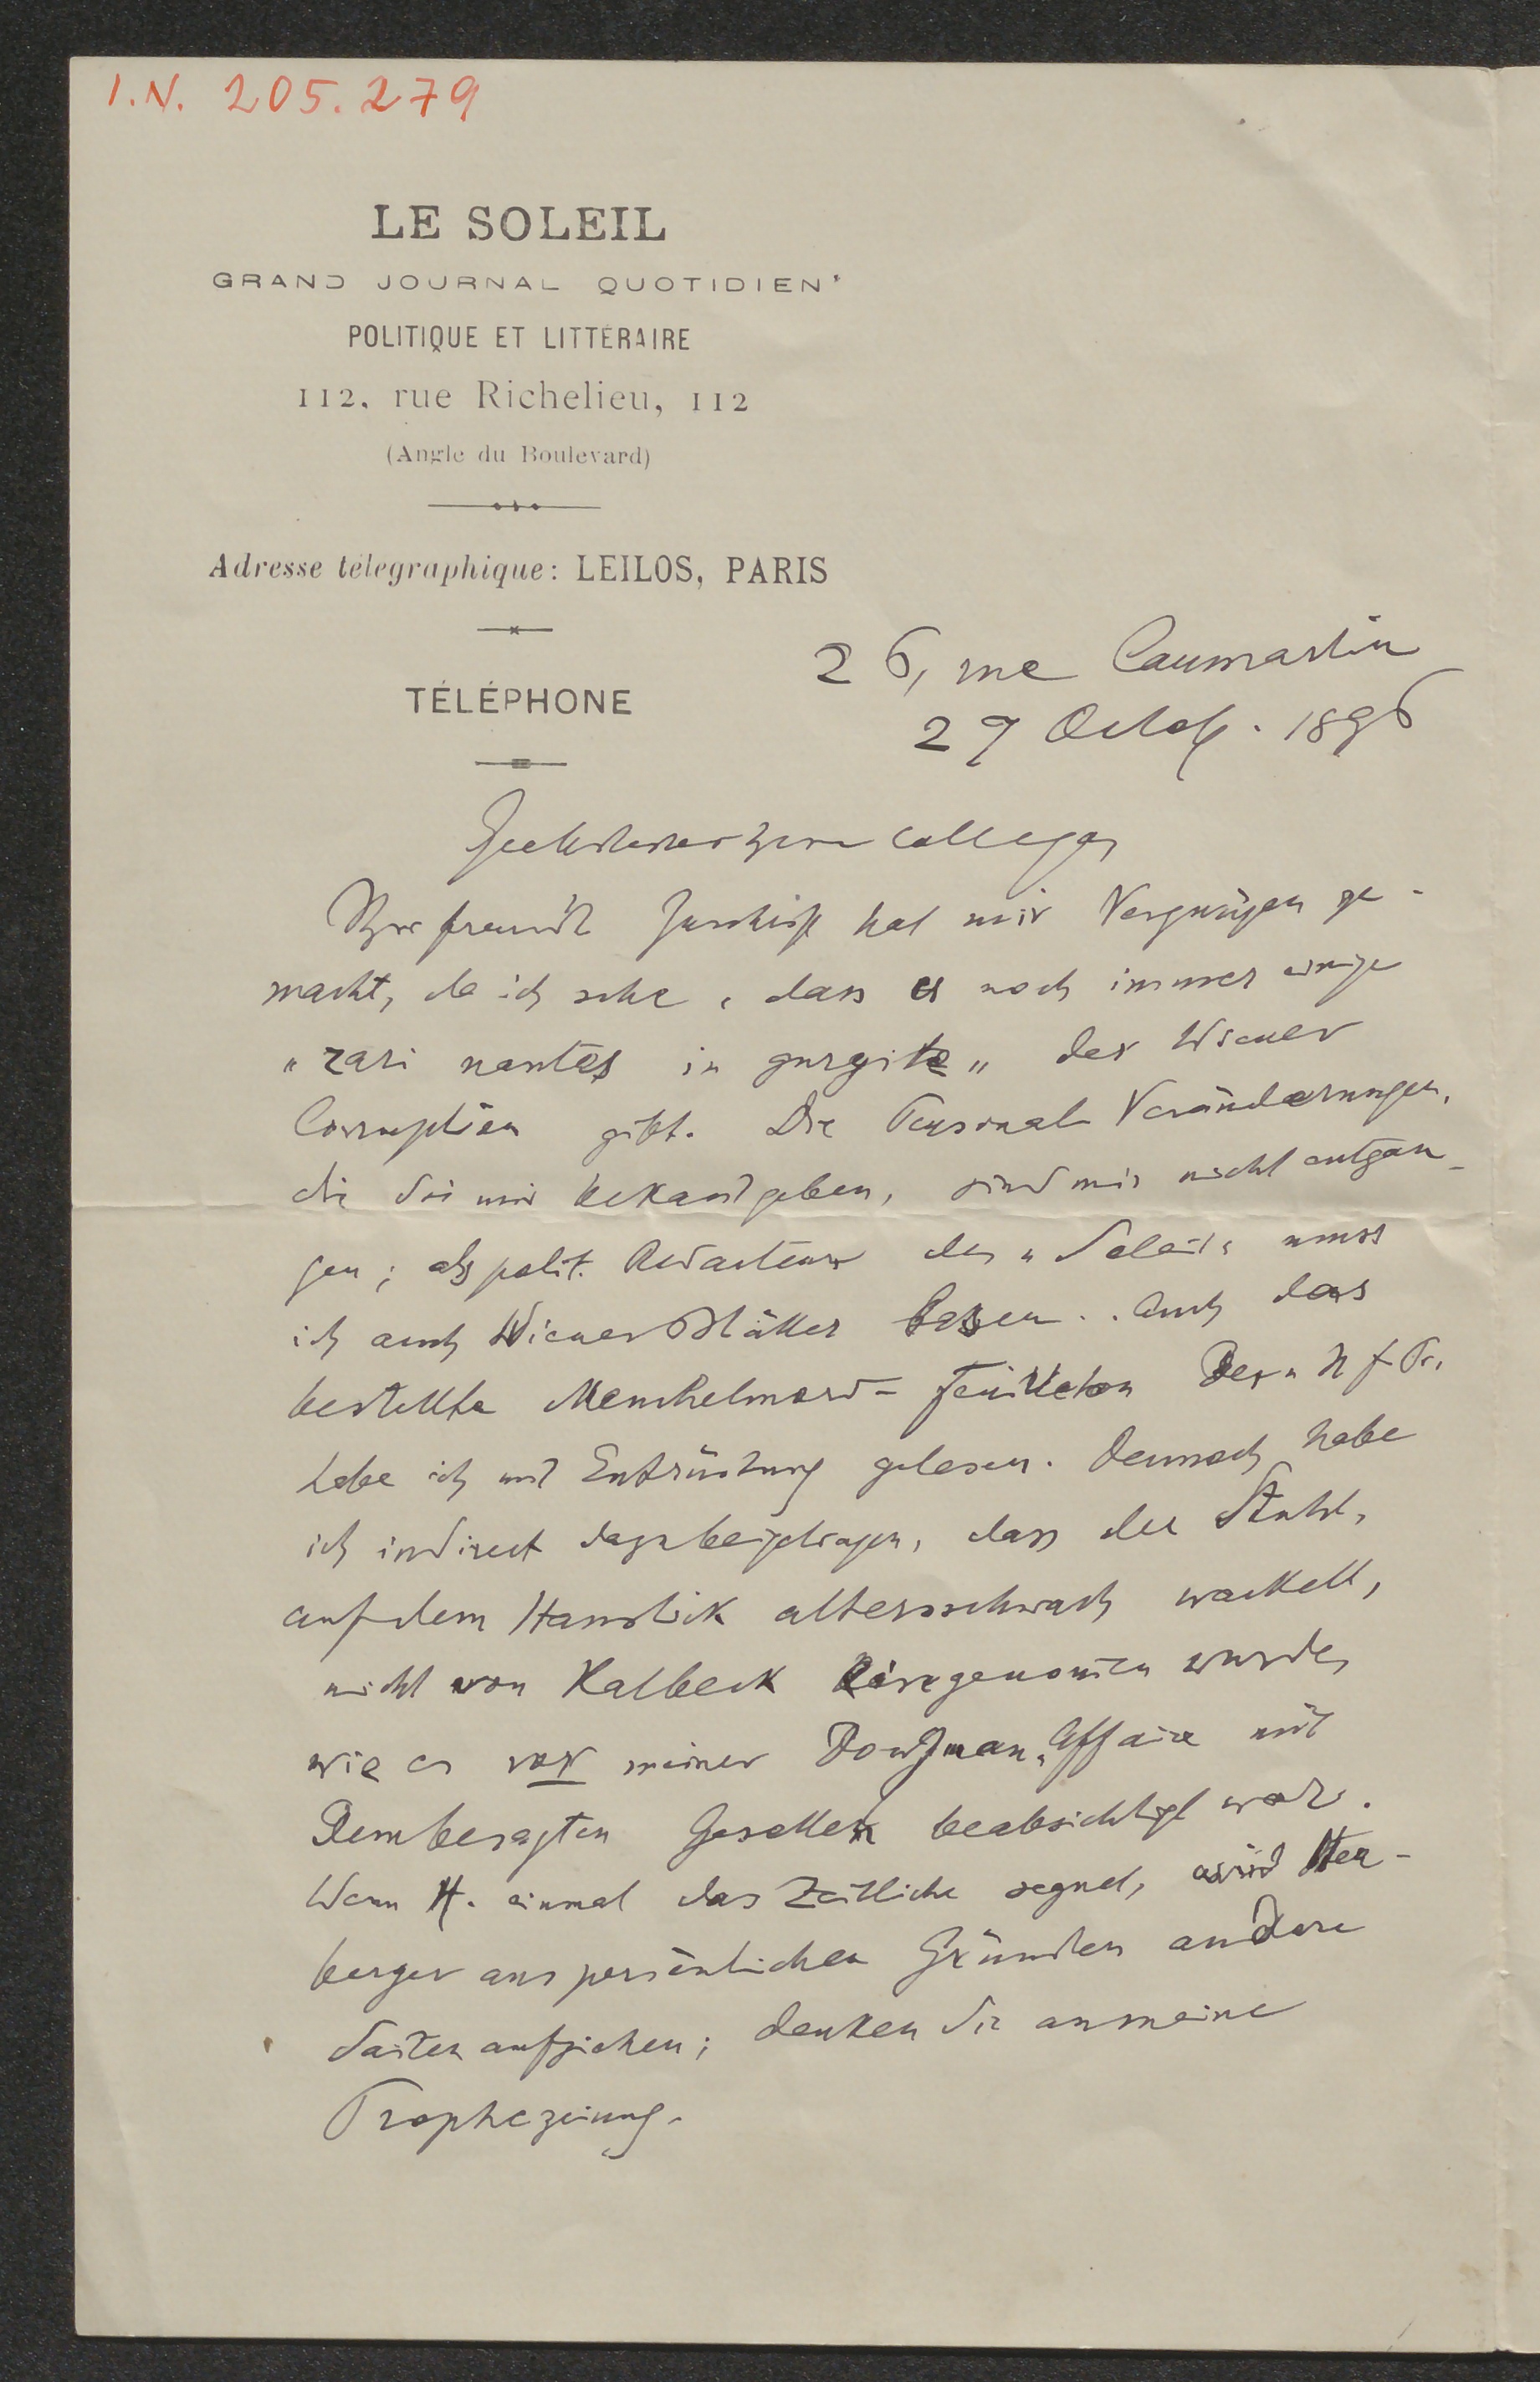 I.N. 205.279
LE SOLEIL
GRAND JOURNAL QUOTIDIEN
POLITIQUE ET LITTÉRAIRE
112, rue Richelieu, 112
(Angle du Boulevard)
Adresse télégraphique: LEILOS, PARIS
TÉLÉPHONE
26, rue Caumartin
29 Octob. 1896
Geehrtester Herr College,
Ihre freundl Zuschrift hat mir Vergnügen ge-
macht, da ich sehe, dass es noch immer einige
"rari nantes in gurgite" der Wiener
Corruption gibt. Die Personal Veränderungen,
die Sie mir bekant geben, sind mir nicht entgan-
gen; als polit. Redacteur des "Soleil" muss
ich auch Wiener Blätter lesen. Auch das
bestellte Meuchelmord-Feuilleton der N f Pr.
habe ich mit Entrüstung gelesen. Dennoch habe
ich indirect dazu beigetragen, dass der Stuhl,
auf dem Hanslick altersschwach wackelt,
nicht von Kalbeck eingenomen wurde,
wie es vor meiner Affaire mit
dem besagten Gesellen beabsichtigt war.
Wenn H. einmal das Zeitliche segnet, wird Heu-
berger aus persönlichen Gründen andere
Saiten aufziehen; denken Sie an meine
Prophezeiung.